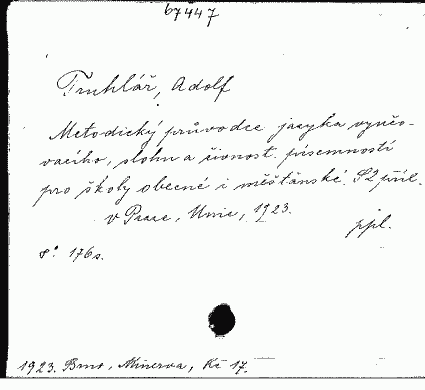 67447
Truhlář, Adolf
Metodický průvodce jazyka vyučo-
vacího, slohu a živnost. písemností
pro školy obecné i měšťanské. S 2 příl.
v Praze, Unie, 1923.
ppl.
8°. 176 s.
1923. Brno, Minerva, Kč 17.